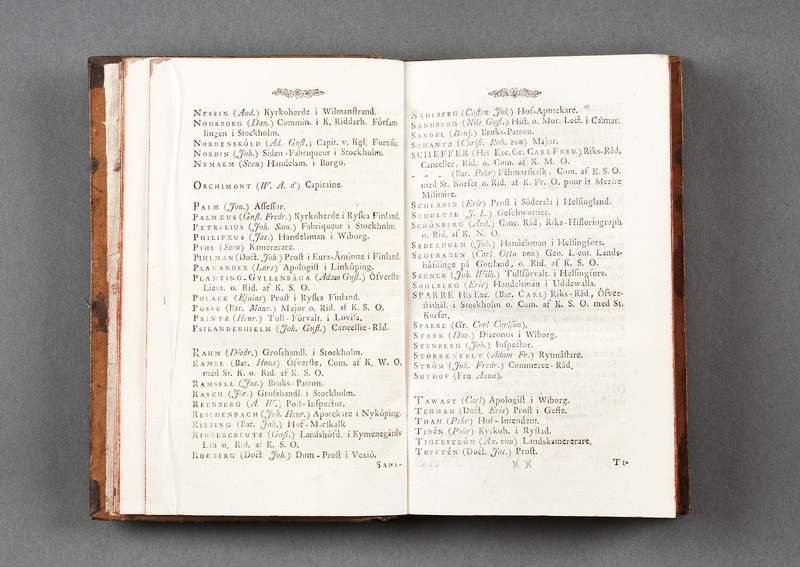 NESSIN (And.) Kyrkoherde i Wilmanstrand.
NOHRBORG (Dan.) Commin. i K. Riddarh. Församlingen i Stockholm.
NORDENSKÖLD (Ad. Gust.) Capit. v. Kgl. Fortific.
NORDIN (Joh.) Siden-Fabriqueur i Stockholm.
NYMALM (Sven) Handelsm. i Borgo.
ORCHIMONT (W. A. d') Capitaine.
PALM (Jon.) Assessor.
PALMÆUS (Gust. Fredr.) Kyrkoherde i Ryska Finland.
PETRELIUS (Joh. Sam.) Fabriqueur i Stockholm.
PHILIPÆUS (Jac.) Handelsman i Wiborg.
PIHL (Sven) Kamererare.
PIHLMAN (Doct. Joh.) Prost i Eura-Åminne i Finland.
PLANANDER (Lars) Apologist i Linköping.
PLANTING-GYLLENBÅGA (Adam Gust.) Öfverste-
Lieut. o. Rid. af K. S. O.
POLACE (Esaias) Prost i Ryska Finland.
POSSE (Bar. Maur.) Major o. Rid. af K. S. O.
PRINTZ (Henr.) Tull-Förvalt. i Lovisa.
PSILANDERHIELM (Joh. Gust.) Cancellie-Råd.
RAHM (Diedr.) Grosshandl. i Stockholm.
RAMEL (Bar. Hans) Öfverste, Com. af K. W. O.
med St. K. o. Rid. af K. S. O.
RAMSELL (Jac.) Bruks-Patron.
RASCH (Jör.) Grosshandl. i Stockholm.
REENBERG (A. W.) Post-Inspector.
REICHENBACH (Joh. Henr.) Apotekare i Nyköping.
RIBBING (Bar. Joh.) Hof-Marskalk
RIDDERCREUTZ (Gust.) Landshöfd. i Kymenegårds
Län o. Rid. af K. S. O.
ROGBERG (Doct Joh.) Dom-Prost i Vexiö.
SAHL-
SAHLBERG (Casten Jul.) Hof-Apotekare.
SANDBERG (Nils Gust.) Hist. o. Mor. Lect. i Calmar.
SANDEL (Benj.) Bruks-Patron.
SCHANTZ (Christ. Rob. von) Major.
SCHEFFER (His Exc. Gr. CARL FRED.) Riks-Råd,
Canceller, Rid. o. Com. af K. M. O.
- - - (Bar. Pehr) Fältmarskalk, Com. af K. S. O.
med St. Korset o. Rid. af K. Fr. O. pour le Merite
Militaire.
SCHERDIN (Eric) Prost i Söderala i Helsingland.
SCHULTZE (J. L.) Geschworner.
SCHÖNBERG (And.) Canc. Råd, Riks-Historiograph
o. Rid. af K. N. O.
SEDERHOLM (Joh.) Handelsman i Helsingfors.
SEGEBADEN (Carl Otto von) Gen. Lieut. Lands-
höfdinge på Gottland, o. Rid. af K. S. O.
SKUNCK (Joh. Wilh.) Tullförvalt. i Helsingfors.
SOHLBERG (Eric) Handelsman i Uddewalla.
SPARRE His Exc. (Bar. CARL) Riks-Råd, Öfver-
ståthål. i Stockholm o. Com. af K. S. O. med St.
Korset.
SPARRE (Gr. Carl Carlson).
STARK (Dav.) Diaconus i Wiborg.
STENBERG (Joh.) Inspector.
STORKENFELT (Adam Fr.) Rytmästare.
STRÖM (Joh. Fredr.) Commerce-Råd.
SUTHOF (Fru Anna).
TAWAST (Carl) Apologist i Wiborg.
TEGMAN (Doct. Eric) Prost i Gefle.
THAM (Pehr) Hof-Intendent.
TIDÉN (Pehr) Kyrkoh. i Rystad.
TIGERSTRÖM (Ax. von) Landskamererare.
TOFFTÉN (Doct. Jac.) Prost.
)( )(
TI-